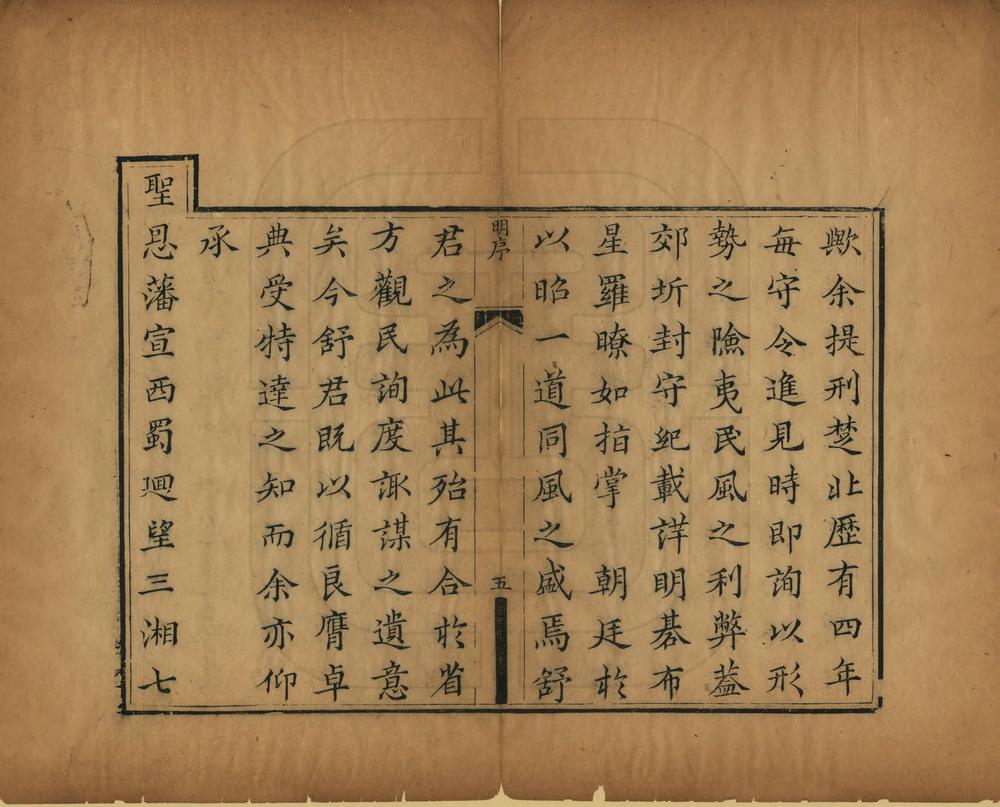 歟余提刑楚北歷有四年
每守令進見時即詢以形
勢之險夷民風之利弊葢
郊圻封守紀載詳明棊布
星羅瞭如指掌 朝廷於
以昭一道同風之盛焉舒
明序
五
君之為此其殆有合於省
方觀民詢度諏謀之遺意
矣今舒君旣以循良膺卓
典受特達之知而余亦仰
承
聖恩藩宣西蜀迴望三湘七